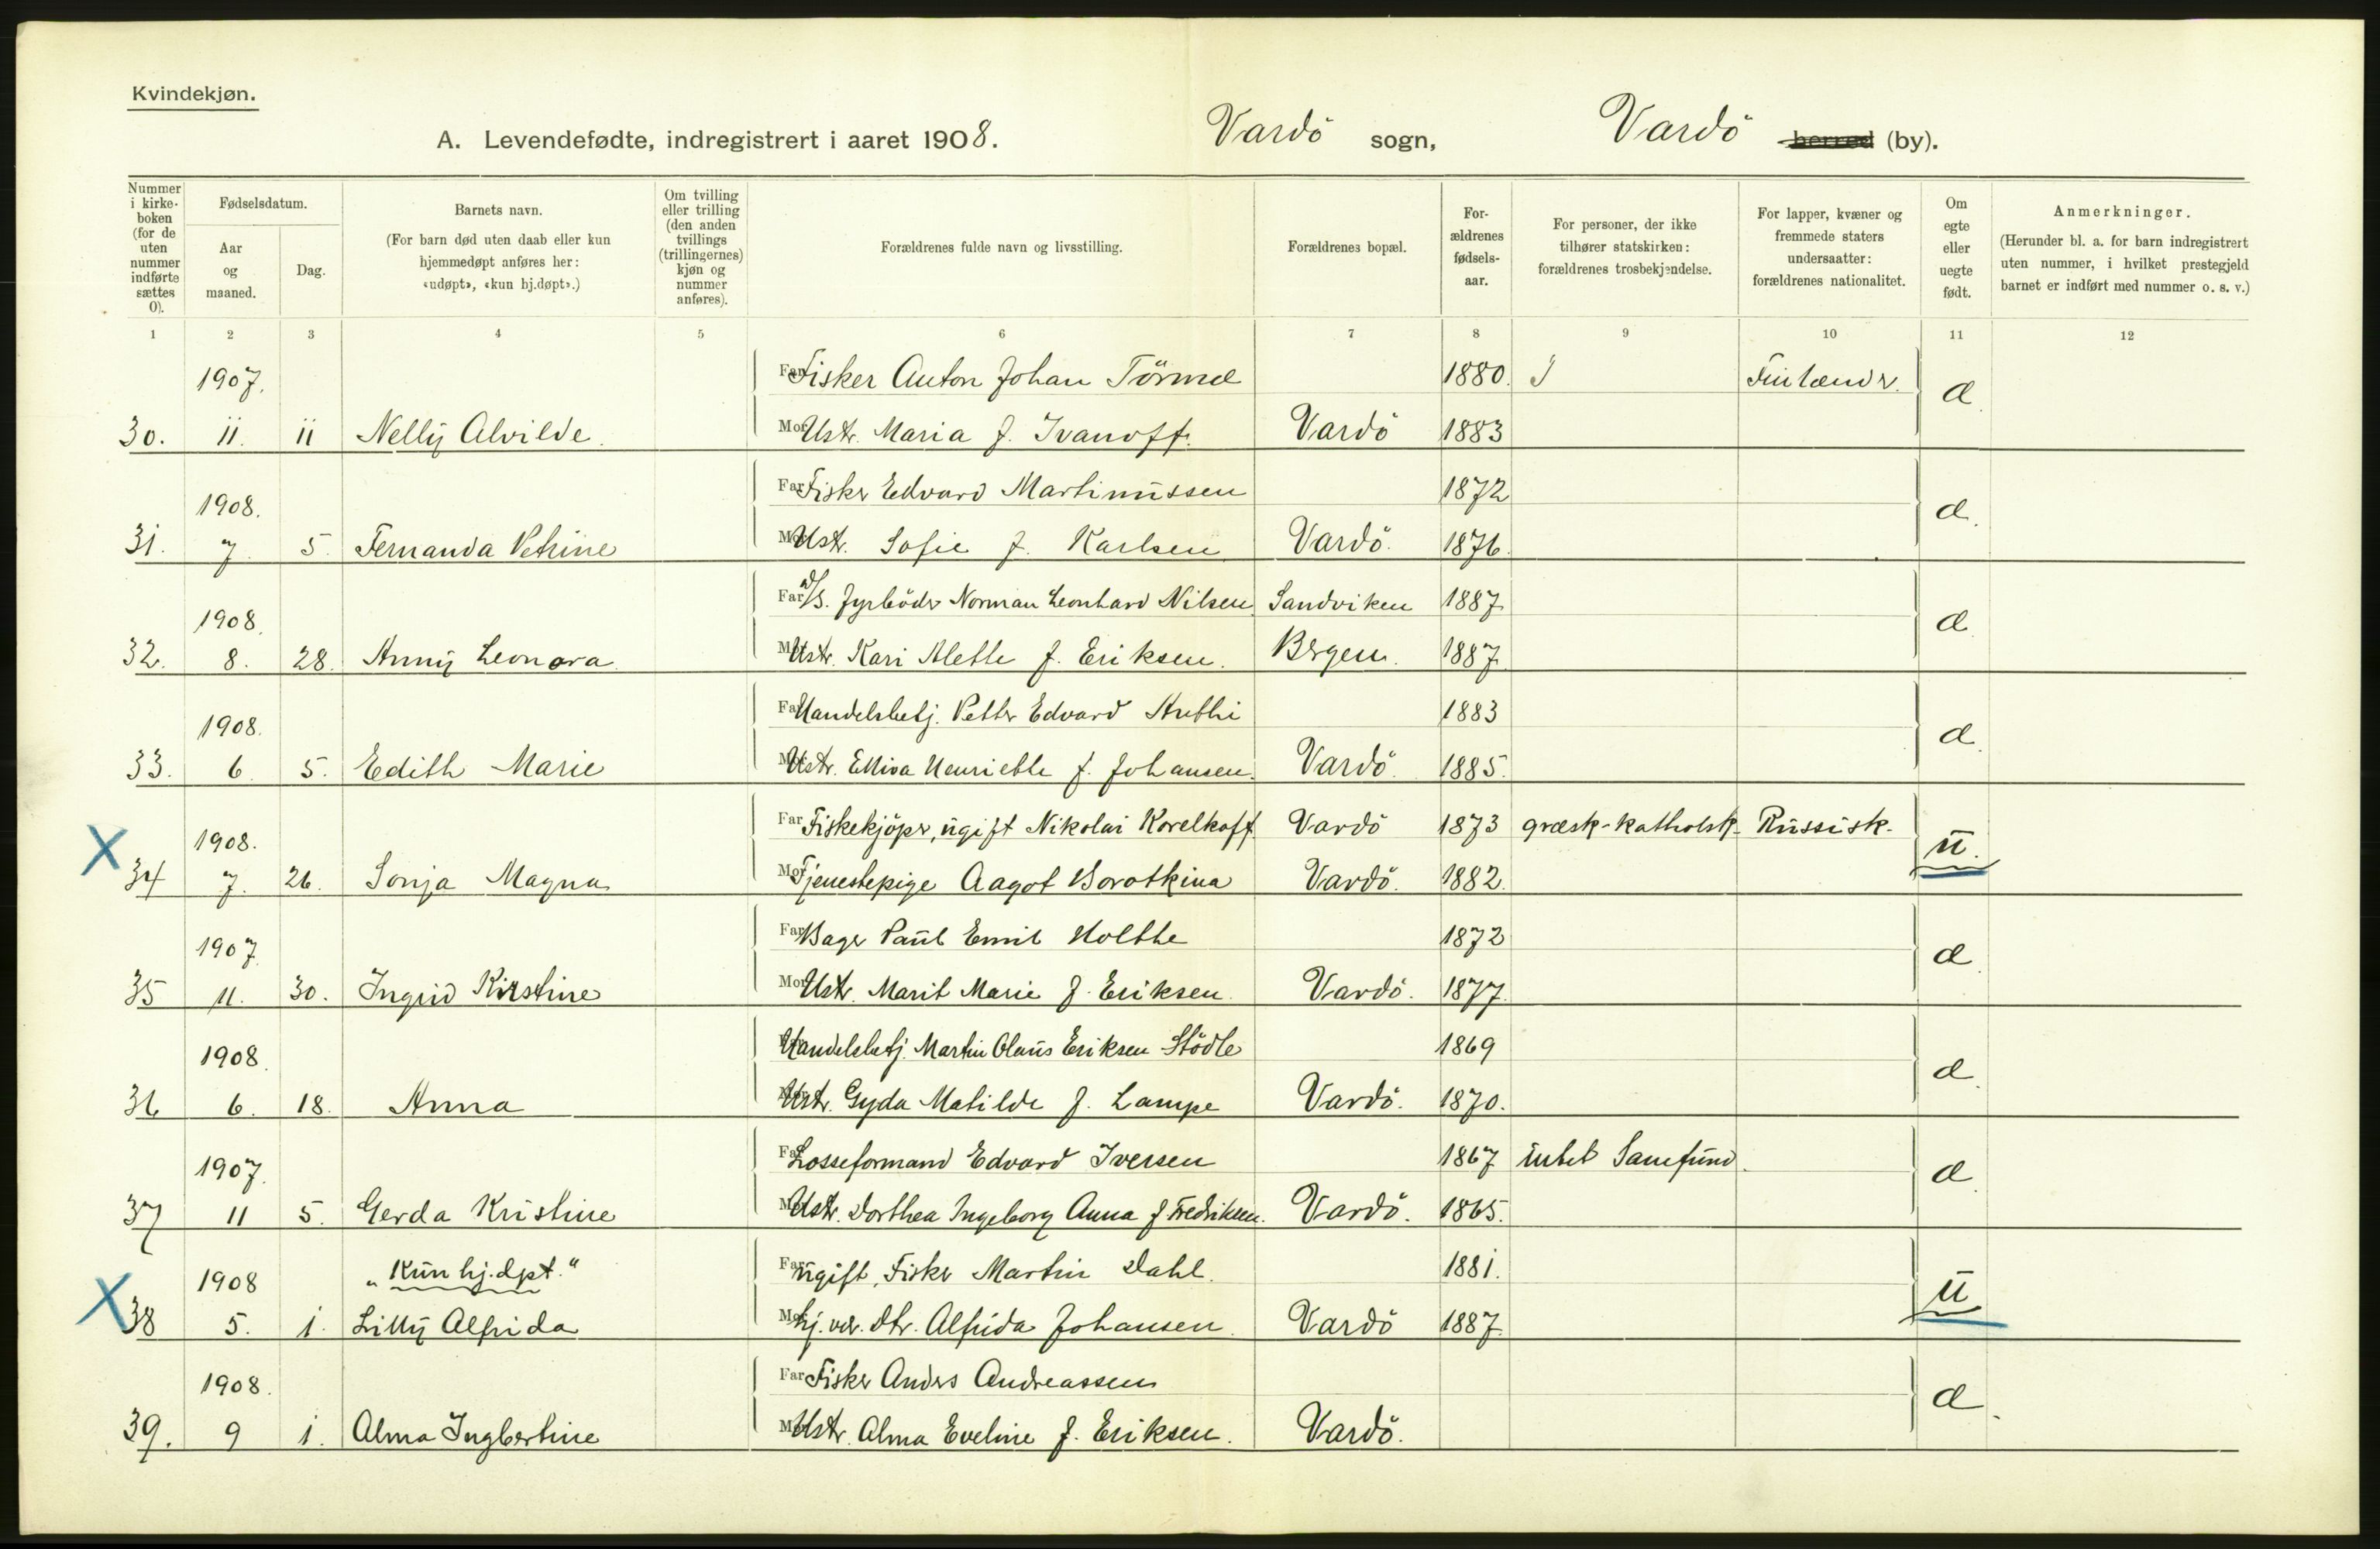 Kvindekjøn.
A. Levendefødte, indregistrert i aaret 1908. Vardö sogn, Vardö herred (by).
Nummer i kirke-boken (for de uten nummer indførte sættes 0).
Fødselsdatum.
Aar og maaned.
Dag.
Barnets navn.
(For barn død uten daab eller kun hjemmedøpt anføres her: «udøpt», «kun hj.døpt».)
Om tvilling eller trilling (den anden tvillings (trillingernes) kjøn og nummer anføres).
Forældrenes fulde navn og livsstilling.
Forældrenes bopæl.
For-ældrenes fødsels-aar.
For personer, der ikke tilhører statskirken: forældrenes trosbekjendelse.
For lapper, kvæner og fremmede staters undersaatter: forældrenes nationalitet.
Om egte eller uegte født.
Anmerkninger.
(Herunder bl. a. for barn indregistrert uten nummer, i hvilket prestegjeld barnet er indført med nummer o. s. v.)
1 2 3 4 5 6 7 8 9 10 11 12
1907. Far Fisker Anton Johan Törmel 1880. Finlænder. d
30. 11. 11 Nelly Alvilde. Mor Hstr. Maria f. Ivanoff. Vardö 1883
1908. Far Fisker Edvard Martinussen 1872 d.
31. 7. 5. Fernanda Petrine Mor Hstr. Sofie f. Karlsen Vardö. 1876.
1908. Far d/s. Fyrböder Norman Leonhard Nilsen Sandviken 1887 d
32. 8. 28. Anny Leonora. Mor Hstr. Kari Alette f. Eriksen. Bergen. 1887
1908. Far Handelsbetj. Petter Edvard Anthi 1883 d.
33. 6. 5. Edith Marie Mor Hstr. Henriette f. Johansen. Vardö. 1885.
X 1908. Far Fiskekjöper, ugift Nikolai Korelkoff Vardö 1873 græsk-katholsk Russisk. u.
34 7. 26. Sonja Magna Mor Tjenestepige Aagot Borotkina Vardö. 1882.
1907. Far Bager Paul Emil Holthe 1872 d
35 11. 30. Ingrid Kirstine Mor Hstr. Marit Marie f. Eriksen. Vardö. 1877.
1908. Handelsbetj. Martin Olaus Eriksen Stödle 1869 d.
36 6. 18. Anna Mor Hstr. Gyda Matilde f. Lampe Vardö. 1870.
1907. Far Losseformand Edvard Iversen 1867 intet Samfund. d.
37 11 5. Gerda Kristine Mor Hstr. Dorthea Ingeborg Anna f. Fredriksen. Vardö. 1865.
1908 „Kun hj.dpt.“ Far ugift, Fisker Martin Dahl. 1881. u
X 38 5. 1. Lilly Alfrida Mor hj. vær. Dtr. Alfrida Johansen. Vardö 1887.
1908. Far Fisker Anders Andreassen d.
39. 9 1. Alma Ingbertine Mor Hstr. Alma Eveline f. Eriksen. Vardö.